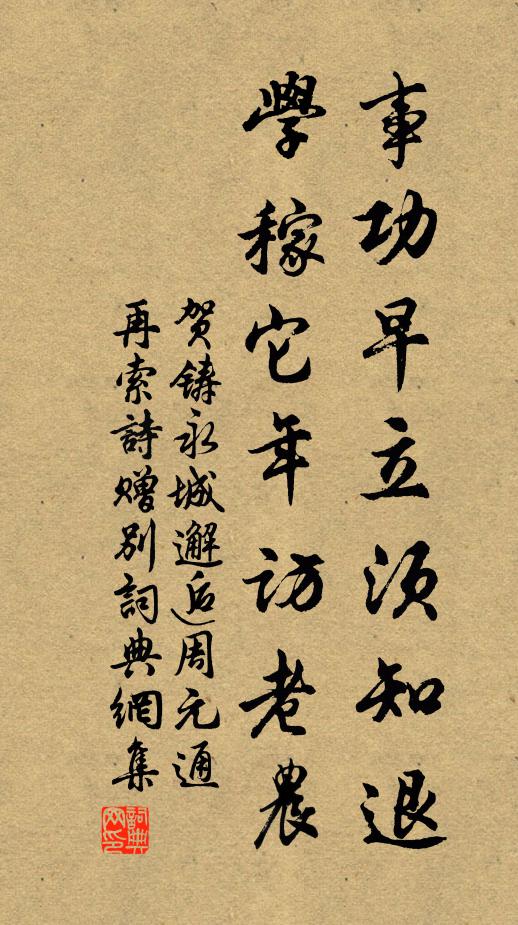 事功早立須知退
學稼它年訪老農
賀鑄永城邂逅周元通
再索詩贈別詞典網集
詞典
网印